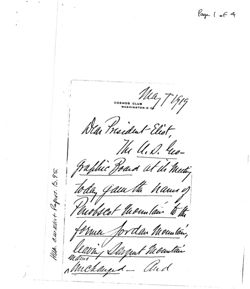 Page 1 of 4
May 7 1919
COSMOS CLUB
WASHINGTON D.C.
Dear President Eliot,
The U.S. Geo-
graphic Board at its meeting
today gave the name of
Penobscot Mountain to the
former Jordan Mountain,
leaving Sargent Mountain
unchanged — And